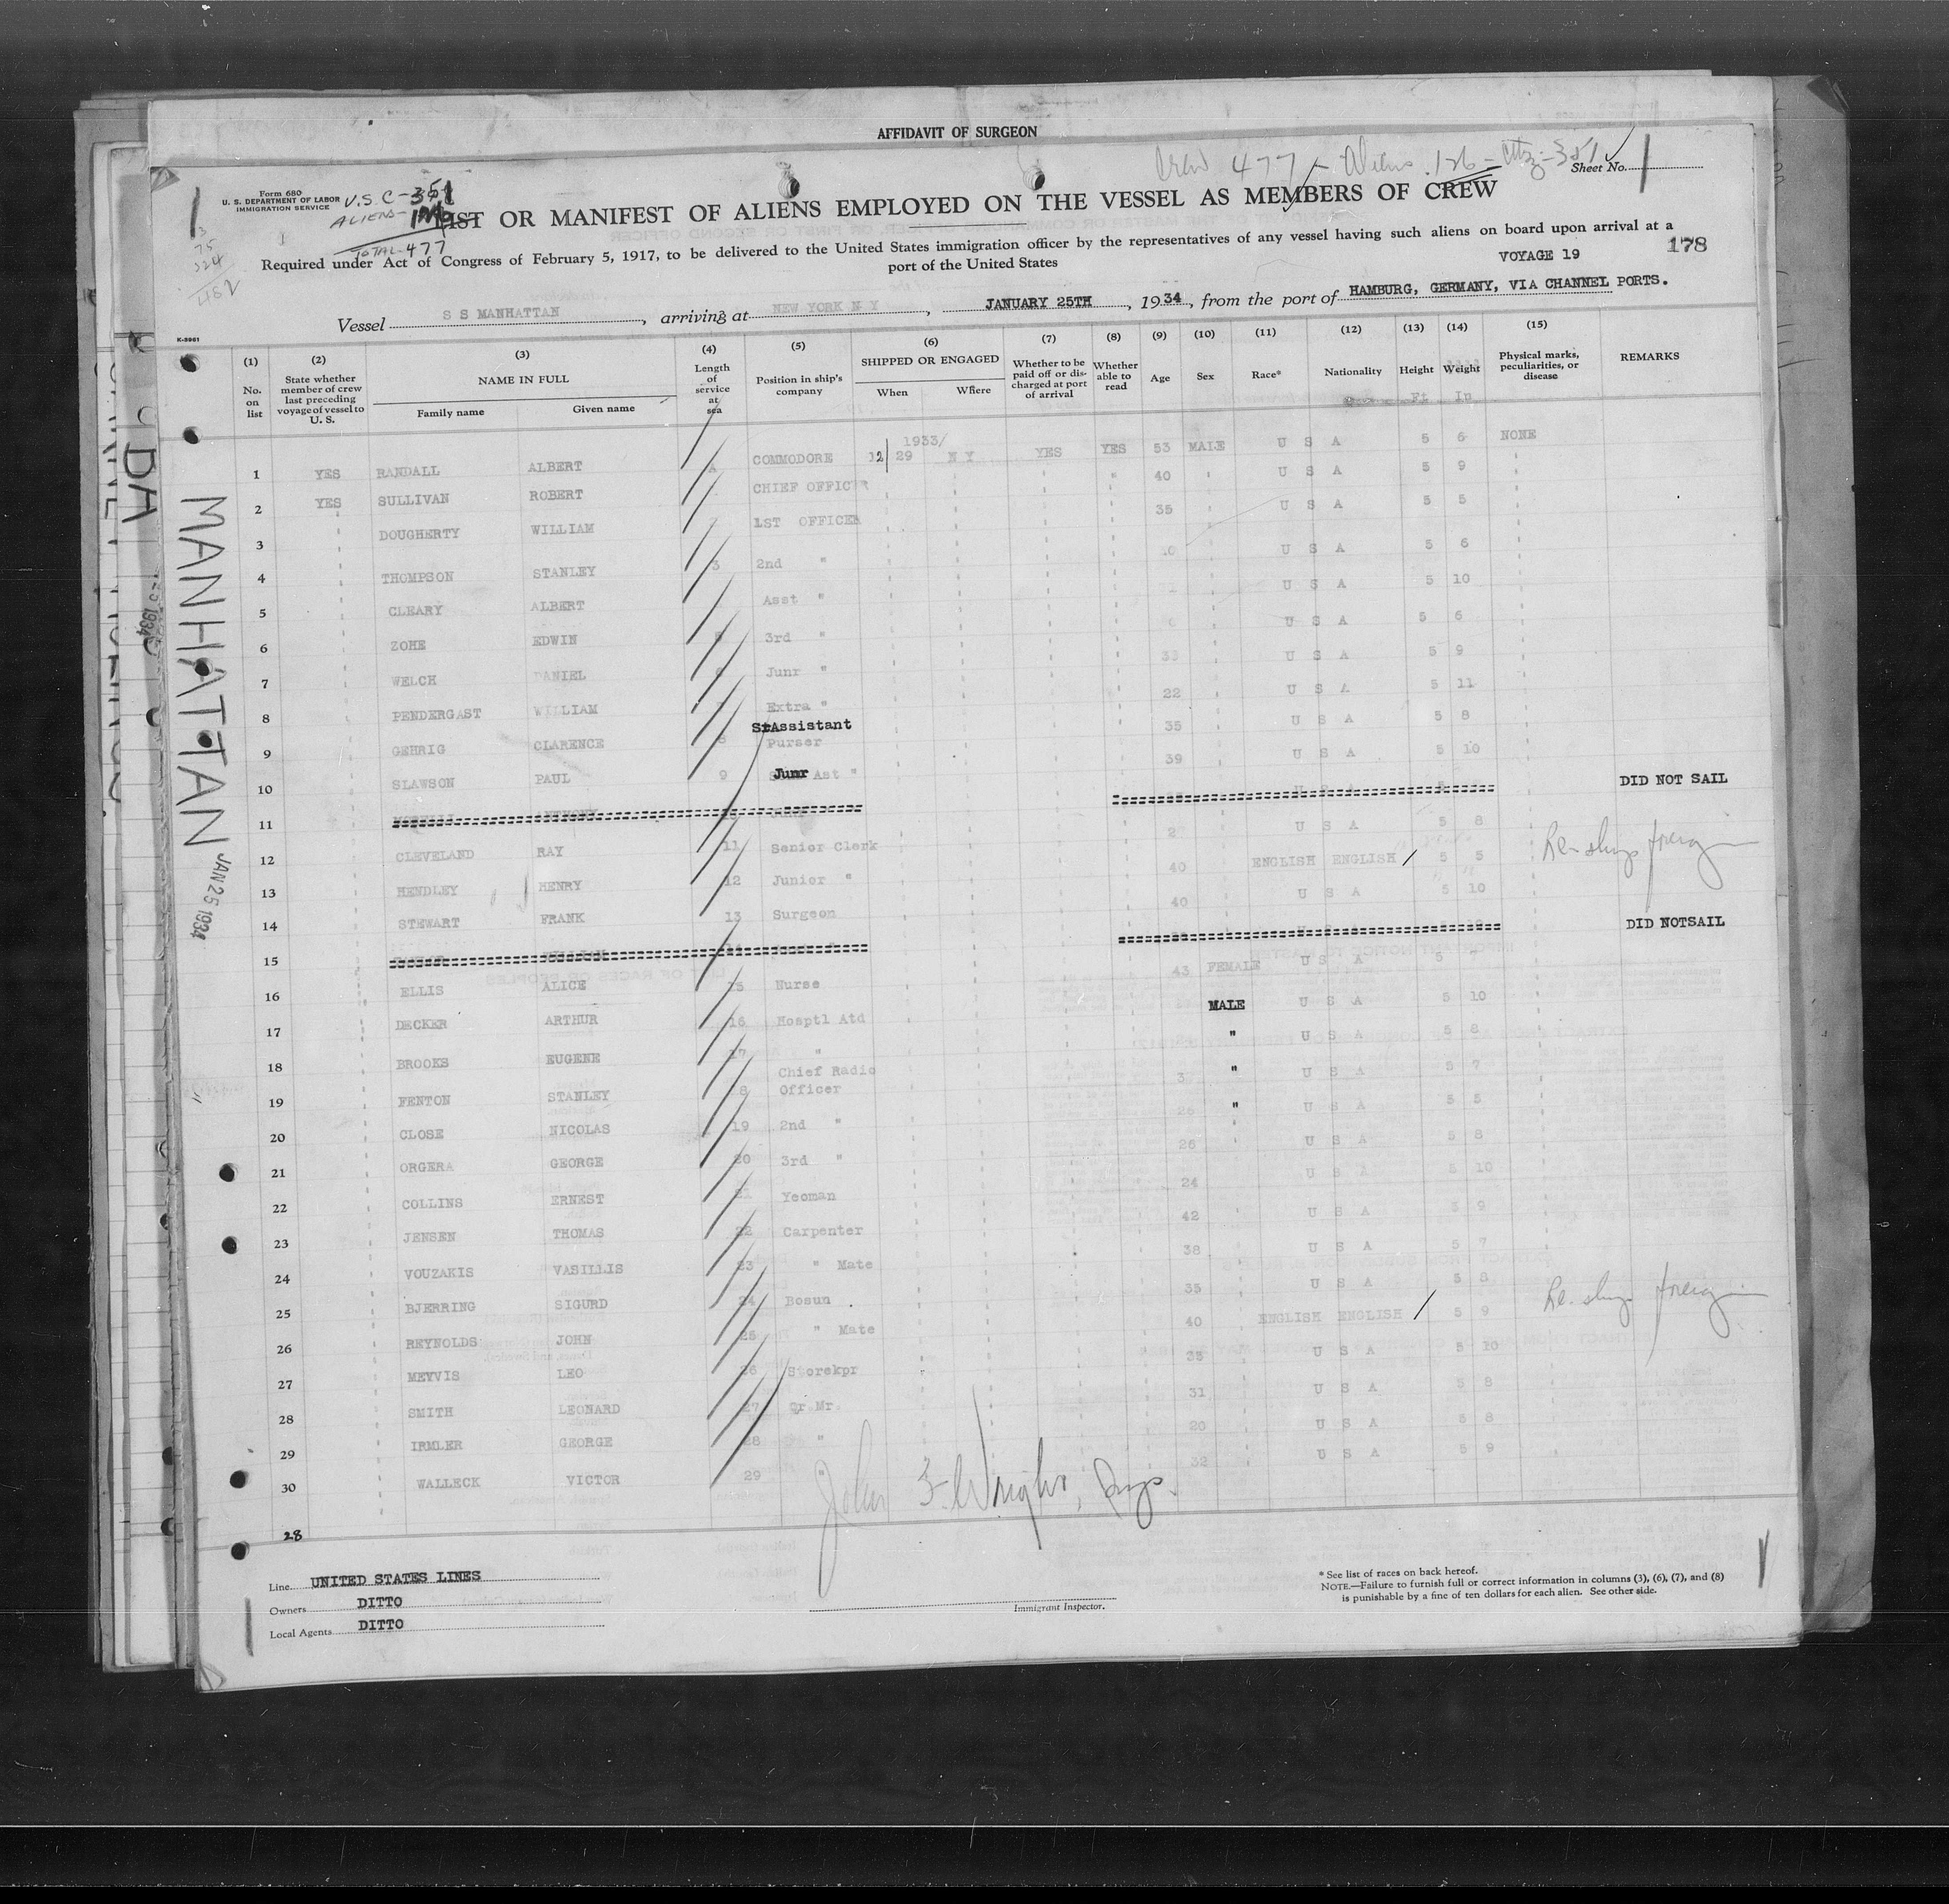 AFFIDAVIT OF SURGEON
Crew 477 - Aliens 126 - Ctz - 351
Sheet No. 1
Form 680
U. S. DEPARTMENT OF LABOR
IMMIGRATION SERVICE
U.S.C-351
ALIENS-
TOTAL-477
LIST OR MANIFEST OF ALIENS EMPLOYED ON THE VESSEL AS MEMBERS OF CREW
Required under Act of Congress of February 5, 1917, to be delivered to the United States immigration officer by the representatives of any vessel having such aliens on board upon arrival at a
port of the United States
VOYAGE 19
178
Vessel S S MANHATTAN, arriving at NEW YORK N Y, JANUARY 25TH, 1934, from the port of HAMBURG, GERMANY, VIA CHANNEL PORTS.
K-5961
(1) No. on list
(2) State whether member of crew last preceding voyage of vessel to U. S.
(3) NAME IN FULL Family name Given name
(4) Length of service at sea
(5) Position in ship's company
(6) SHIPPED OR ENGAGED When Where
(7) Whether to be paid off or discharged at port of arrival
(8) Whether able to read
(9) Age
(10) Sex
(11) Race*
(12) Nationality
(13) Height Ft
(14) Weight In
(15) Physical marks, peculiarities, or disease
REMARKS
1 YES RANDALL ALBERT COMMODORE 1933/ 12/29 N Y YES YES 53 MALE U S A 5 6 NONE
2 YES SULLIVAN ROBERT CHIEF OFFICER " 40 " U S A 5 9
3 " DOUGHERTY WILLIAM 1ST OFFICER 35 U S A 5 5
4 " THOMPSON STANLEY 3 2nd " U S A 5 6
5 CLEARY ALBERT Asst " U S A 5 10
6 ZOHE EDWIN 3rd " U S A 5 6
7 WELCH DANIEL Junr " U S A 5 9
8 PENDERGAST WILLIAM Extra " 22 U S A 5 11
9 GEHRIG CLARENCE SrAssistant Purser 35 U S A 5 8
10 SLAWSON PAUL 9 Junr Ast " 39 U S A 5 10
11 DID NOT SAIL
12 CLEVELAND RAY 11 Senior Clerk U S A 5 8
13 HENDLEY HENRY 12 Junior " 40 ENGLISH ENGLISH / 5 5 Re-ships foreign
14 STEWART FRANK 13 Surgeon 40 U S A 5 10
15 DID NOTSAIL
16 ELLIS ALICE 15 Nurse 43 FEMALE U S A 5 7
17 DECKER ARTHUR 16 Hosptl Atd MALE U S A 5 10
18 BROOKS EUGENE 17 " " U S A 5 8
19 FENTON STANLEY Chief Radio Officer " U S A 5 7
20 CLOSE NICOLAS 19 2nd " 26 " U S A 5 5
21 ORGERA GEORGE 20 3rd " 26 U S A 5 8
22 COLLINS ERNEST 21 Yeoman 24 U S A 5 10
23 JENSEN THOMAS 22 Carpenter 42 U S A 5 9
24 VOUZAKIS VASILLIS 23 " Mate 38 U S A 5 7
25 BJERRING SIGURD 24 Bosun 35 U S A 5 8
26 REYNOLDS JOHN 25 " Mate 40 ENGLISH ENGLISH / 5 9 Re-ships foreign
27 MEYVIS LEO 26 Storekpr U S A 5 10
28 SMITH LEONARD 27 Qr Mr 31 U S A 5 8
29 IRMLER GEORGE 28 " 20 U S A 5 8
30 WALLECK VICTOR 29 " 32 U S A 5 9
28
John F. Wright, Insp.
Line UNITED STATES LINES
Owners DITTO
Local Agents DITTO
Immigrant Inspector.
* See list of races on back hereof.
NOTE.—Failure to furnish full or correct information in columns (3), (6), (7), and (8)
is punishable by a fine of ten dollars for each alien. See other side.
MANHATTAN
JAN 25 1934